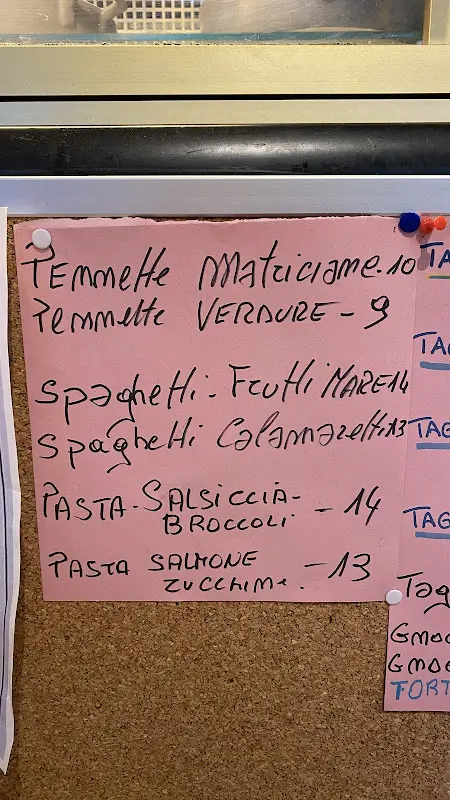 Pennette Matriciana-10
Pennette VERDURE - 9
Spaghetti - Frutti MARE 14
Spaghetti Calamaretti 13
PASTA - SALSICCIA -
BROCCOLI - 14
PASTA SALMONE
ZUCCHINE. - 13
TA
TAG
TAG
TAG
Tag
Gnoc
Gnoc
TORT